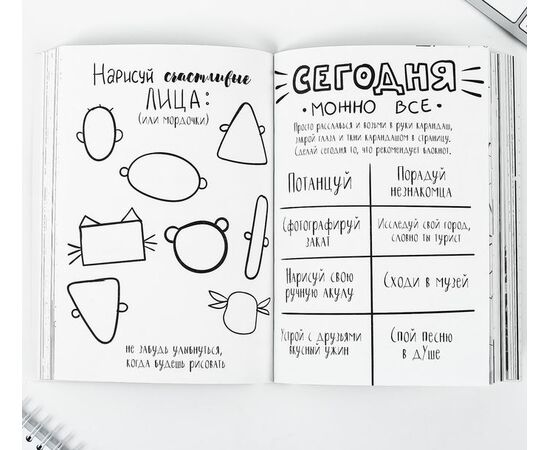 Нарисуй счастливые
ЛИЦА:
(или мордочки)
не забудь улыбнуться,
когда будешь рисовать
СЕГОДНЯ
• МОЖНО ВСЕ •
Просто расслабься и возьми в руки карандаш,
закрой глаза и ткни карандашом в страницу.
Сделай сегодня то, что рекомендует блокнот.
Потанцуй
Порадуй
незнакомца
Сфотографируй
закат
Исследуй свой город,
словно ты турист
Нарисуй свою
ручную акулу
Сходи в музей
Устрой с друзьями
вкусный ужин
Спой песню
в душе